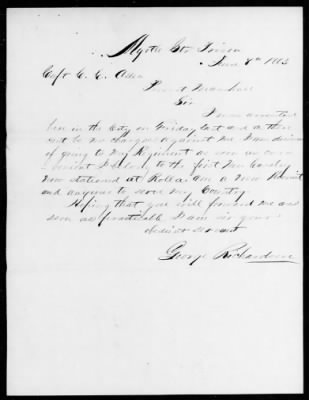 Myrtle St. Prison
June 8th 1863
Capt C. C. Allen
Provost Marshall
Sir
I was arrested
here in the City on Friday last and as there
out be no charges against me I am desirous
of going to my Regiment as soon as
I belong to the first Mo Cavalry
Now stationed at Rolla am a New Recruit
and anxious to serve my Country.
Hoping that you will forward me as
soon as practicable I am sir your
obedient servant
George Richardson